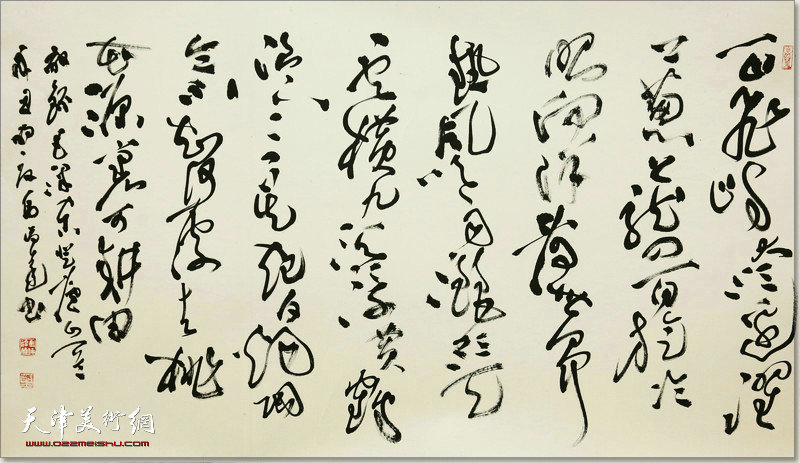 一山飞峙大江边跃
上葱茏四百旋冷
眼向洋看世界
热风吹雨洒江天
云横九派浮黄鹤
浪下三吴起白烟陶
令不知何处去桃
花源里可耕田
敬录毛泽东登庐山
书
天津美術網
www.022meishu.com